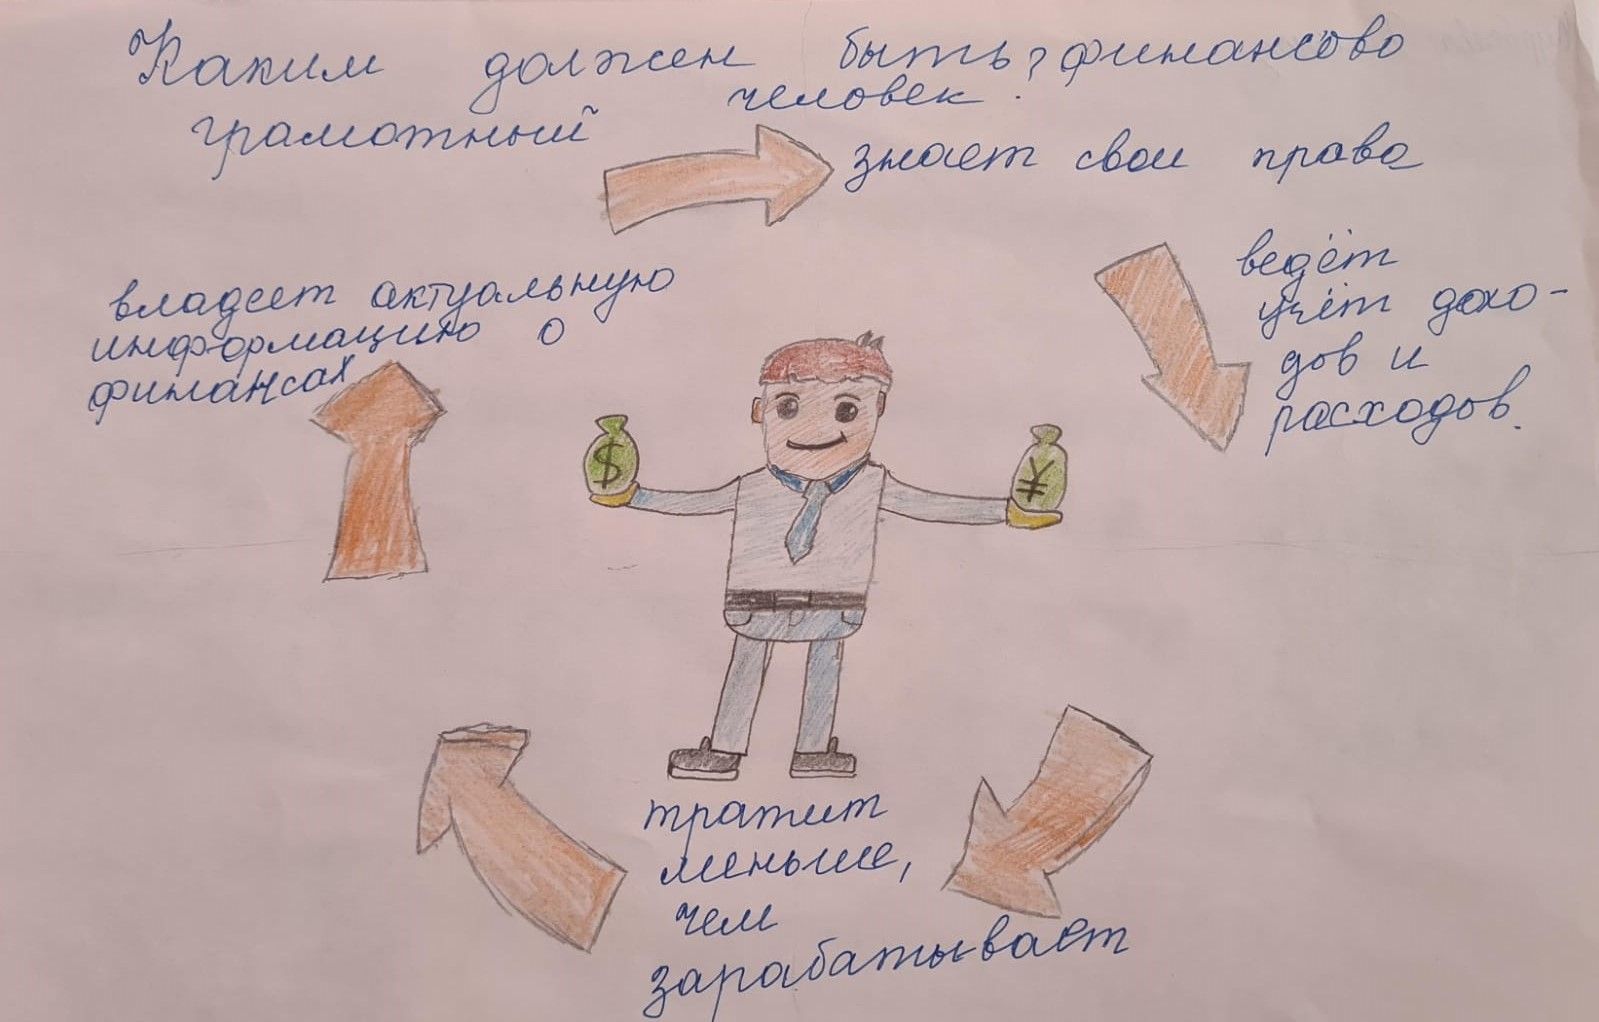 Каким должен быть? финансово
грамотный человек.
знает свои права
ведёт
учёт дохо-
дов и
расходов.
тратит
меньше,
чем
зарабатывает
владеет актуальную
информацию о
финансах
$
¥